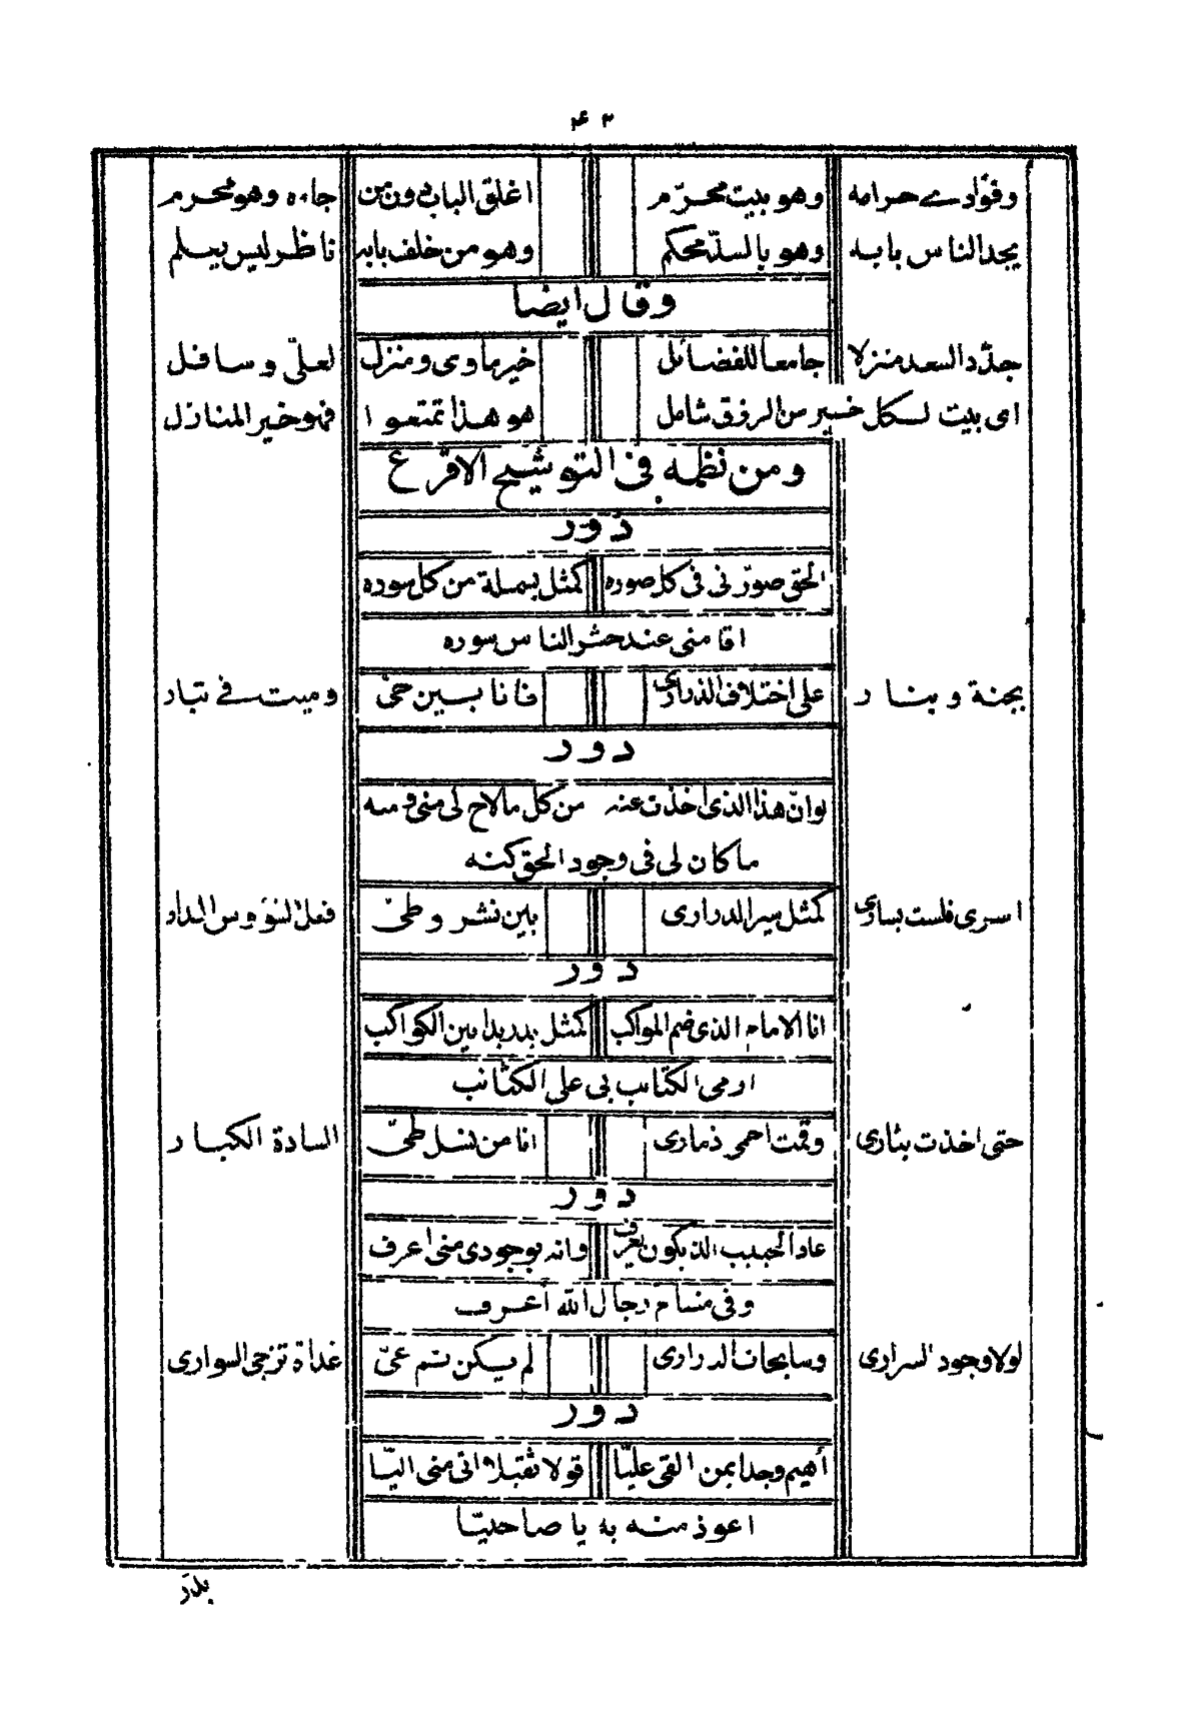 ٤٢
وفؤادے حرامه وهو بيت محرّم اغلق الباب دون من جاءه وهو محرم
يجد الناس بابه وهو بالسدّ محكم وهو من خلف بابه ناظر ليس يعلم
وقال ايضا
جدّد السعد منزلا جامعا للفضائل خير ماوى ومنزل لعلىّ وسافل
اى بيت لكل خير من الرزق شامل هو هذا تمتعوا فهو خير المنازل
ومن نظمه فى التوشيح الاقرع
دور
الحق صوّرنى فى كل صوره كمثل بسملة من كل سوره
اقامنى عند حشر الناس سوره
بجنة وبنار على اختلاف الذرارى فانا بين حىّ وميت فے تبار
دور
لوانّ هذا الذى اخذت عنه من كل ما لاح لى منى ومنه
ما كان لى فى وجود الحق كنه
اسرى فلست بسارى كمثل سير الدرارى بين نشر وطىّ فعل النؤوس المدار
دور
انا الامام الذى ضم المواكب كمثل بدر بدا بين الكواكب
ارمى الكتائب بى على الكتائب
حتى اخذت بثارى وقمت احمى ذمارى انا من نسل طىّ السادة الكبار
دور
عاد الحبيب الذ بكون يعرف وانه بوجودى منى اعرف
وفى منام رجال الله أعرف
لولا وجود السرارى وسابحات الدرارى لم يكن ثم عىّ غداة تزجى السوارى
دور
أهيم وجدا بمن القى عليّا قولا ثقيلا اتى منى اليّا
اعوذ منه به يا صاحبيّا
بدر